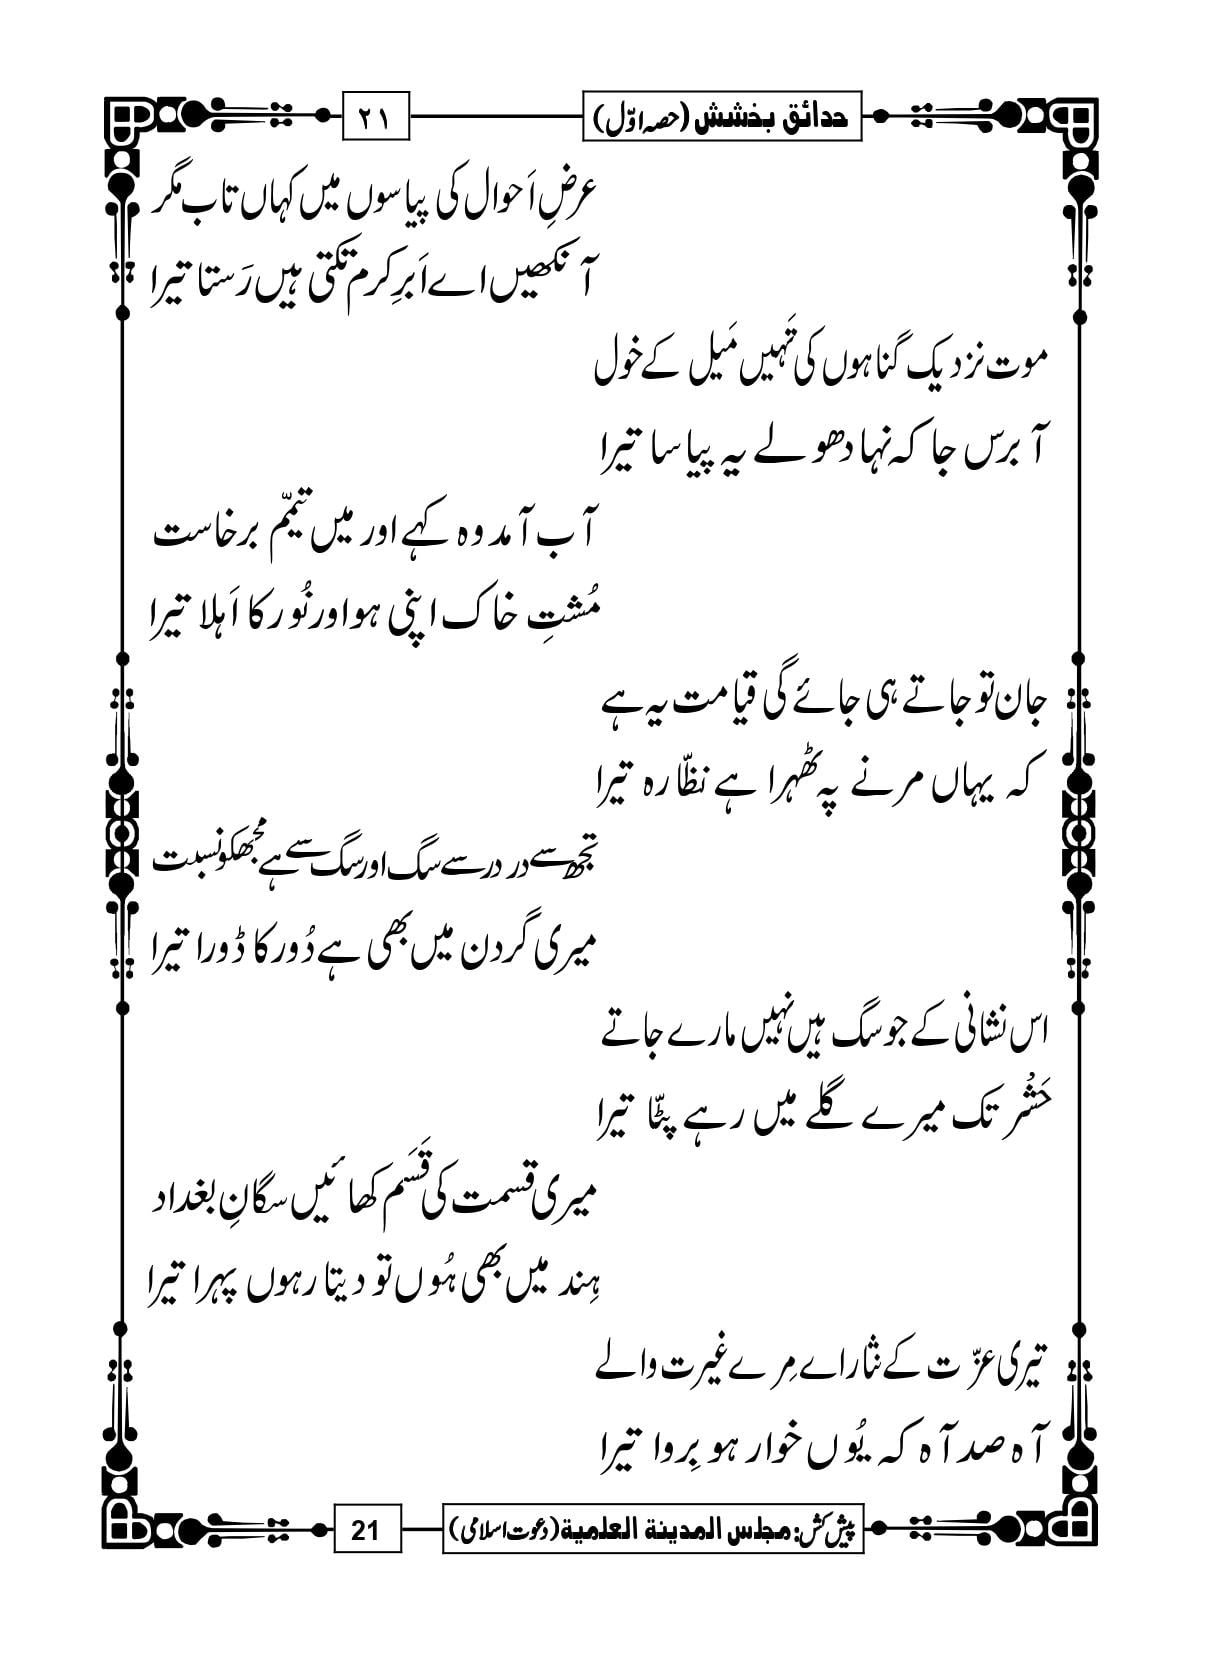 حدائق بخشش (حصہ اوّل)
۲۱
عرضِ اَحوال کی پیاسوں میں کہاں تاب مگر
آنکھیں اے اَبرِ کرم تکتی ہیں رَستا تیرا
موت نزدیک گناہوں کی تَہیں مَیل کے خول
آ برس جا کہ نہا دھو لے یہ پیاسا تیرا
آب آمد وہ کہے اور میں تیمّم برخاست
مُشتِ خاک اپنی ہو اور نُور کا اَہلا تیرا
جان تو جاتے ہی جائے گی قیامت یہ ہے
کہ یہاں مرنے پہ ٹھہرا ہے نظّارہ تیرا
تجھ سے در در سے سگ اور سگ سے ہے مجھکو نسبت
میری گردن میں بھی ہے دُور کا ڈورا تیرا
اس نشانی کے جو سگ ہیں نہیں مارے جاتے
حَشْر تک میرے گلے میں رہے پٹّا تیرا
میری قسمت کی قَسَم کھائیں سگانِ بغداد
ہِند میں بھی ہُوں تو دیتا رہوں پہرا تیرا
تیری عزّت کے نثار اے مِرے غیرت والے
آہ صد آہ کہ یُوں خوار ہو بِروا تیرا
پیش کش: مجلس المدینة العلمیة (دعوت اسلامی)
21